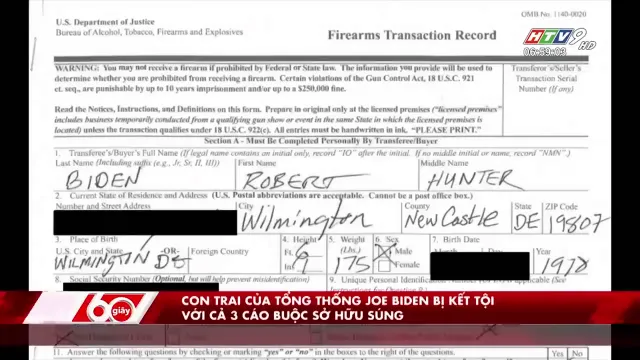 OMB.No. 1140-0020
U.S. Department of Justice
Bureau of Alcohol, Tobacco, Firearms and Explosives
Firearms Transaction Record
HTV9 HD
06:59:03
WARNING: You may not receive a firearm if prohibited by Federal or State law. The information you provide will be used to
determine whether you are prohibited from receiving a firearm. Certain violations of the Gun Control Act, 18 U.S.C. 921
et. seq., are punishable by up to 10 years imprisonment and/or up to a $250,000 fine.
Transferor's/Seller's
Transaction Serial
Number (If any)
Read the Notices, Instructions, and Definitions on this form. Prepare in original only at the licensed premises ("licensed premises"
includes business temporarily conducted from a qualifying gun show or event in the same State in which the licensed premises is
located) unless the transaction qualifies under 18 U.S.C. 922(c). All entries must be handwritten in ink. "PLEASE PRINT."
Section A - Must Be Completed Personally By Transferee/Buyer
1. Transferee's/Buyer's Full Name (If legal name contains an initial only, record "IO" after the initial. If no middle initial or name, record "NMN".)
Last Name (Including suffix (e.g., Jr, Sr, II, III)) First Name Middle Name
BIDEN ROBERT HUNTER
2. Current State of Residence and Address (U.S. Postal abbreviations are acceptable. Cannot be a post office box.)
Number and Street Address City County State ZIP Code
Wilmington New Castle DE 19807
3. Place of Birth 4. Height 5. Weight 6. Sex 7. Birth Date
U.S. City and State -OR- Foreign Country Ft. (Lbs.) Male Year
WILMINGTON DE In. 9 175 Female 1970
8. Social Security Number (Optional, but will help prevent misidentification) 9. Unique Personal Identification
60 giây
CON TRAI CỦA TỔNG THỐNG JOE BIDEN BỊ KẾT TỘI
VỚI CẢ 3 CÁO BUỘC SỞ HỮU SÚNG
11. Answer the following questions by checking or marking "yes" or "no" in the boxes to the right of the questions. Yes No